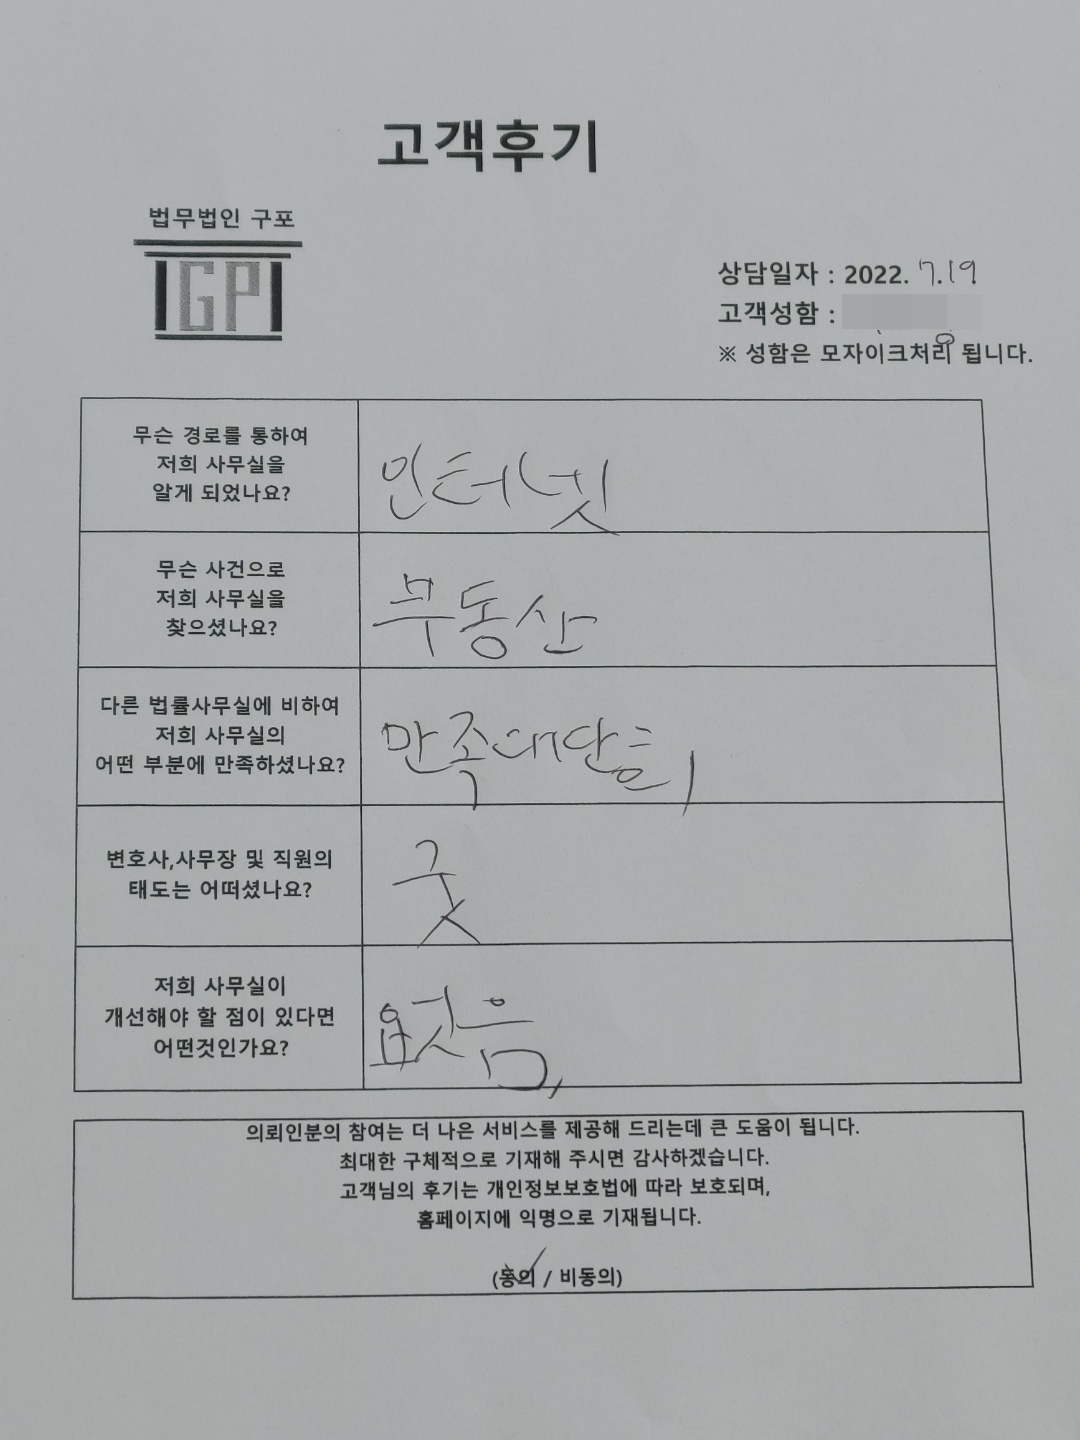 고객후기
법무법인 구포
IGPI
상담일자 : 2022. 7.19
고객성함 :
※ 성함은 모자이크처리 됩니다.
무슨 경로를 통하여
저희 사무실을
알게 되었나요?
인터넷
무슨 사건으로
저희 사무실을
찾으셨나요?
부동산
다른 법률사무실에 비하여
저희 사무실의
어떤 부분에 만족하셨나요?
만족대단히
변호사,사무장 및 직원의
태도는 어떠셨나요?
굿
저희 사무실이
개선해야 할 점이 있다면
어떤것인가요?
의뢰인분의 참여는 더 나은 서비스를 제공해 드리는데 큰 도움이 됩니다.
최대한 구체적으로 기재해 주시면 감사하겠습니다.
고객님의 후기는 개인정보보호법에 따라 보호되며,
홈페이지에 익명으로 기재됩니다.
(동의 / 비동의)